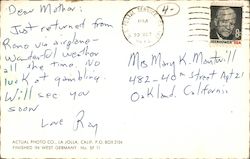 Dear Mother:
Just returned from
Reno via airplane -
Wonderful weather
all the time. No
luck at gambling.
Will see you
soon
Love Ray
ACTUAL PHOTO CO., LA JOLLA, CALIF. P.O. BOX 2104
FINISHED IN WEST GERMANY, No. SF 11
PM
EISENHOWER USA
Mrs Mary K.
482-40th Street Apt 21
Oakland, California